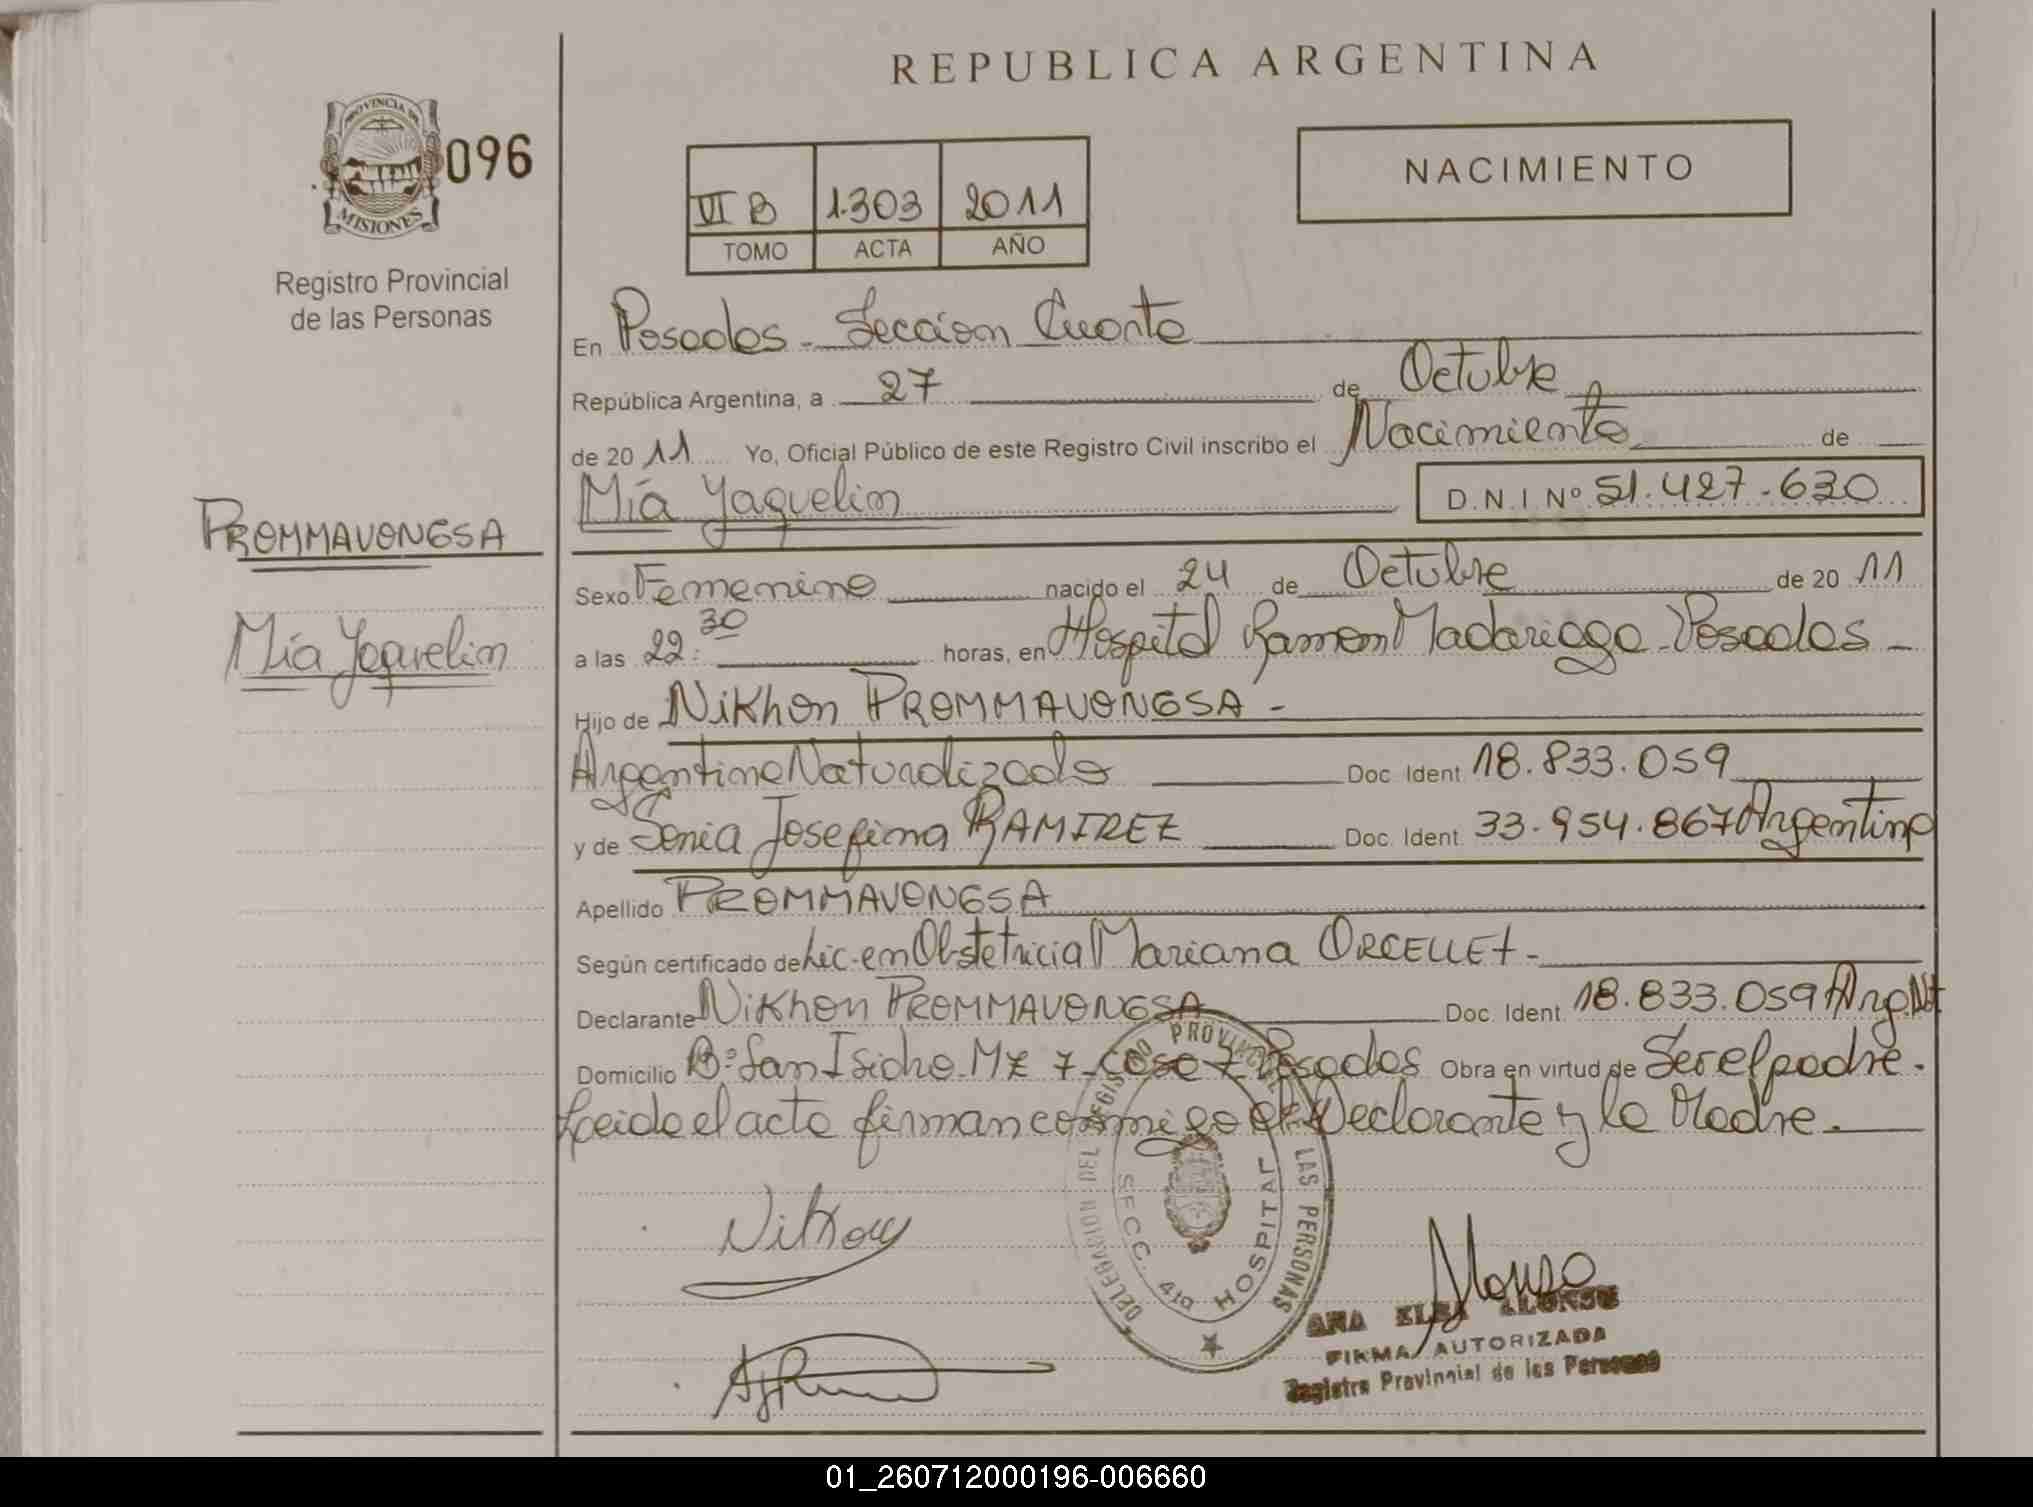 REPUBLICA ARGENTINA
PROVINCIA DE
MISIONES
096
Registro Provincial
de las Personas
NACIMIENTO
VI B 1.303 2011
TOMO ACTA AÑO
En Posadas - Sección Cuarta
República Argentina, a 27 de Octubre
de 20 11 Yo, Oficial Público de este Registro Civil inscribo el Nacimiento de
Mía Yaquelin D.N.I Nº 51.427.630
PROMMAVONGSA
Mía Yaquelin
Sexo Femenino nacido el 24 de Octubre de 20 11
a las 22:30 horas, en Hospital Ramon Madariaga - Posadas -
Hijo de Nikhon PROMMAVONGSA -
Argentino Naturalizado Doc. Ident. 18.833.059
y de Sonia Josefina RAMIREZ Doc. Ident. 33.954.867 Argentina
Apellido PROMMAVONGSA
Según certificado de Lic. en Obstetricia Mariana ORCELLET -
Declarante Nikhon PROMMAVONGSA Doc. Ident. 18.833.059 Arg. Nat
Domicilio Bº San Isidro Mz 7 - Casa 7 Posadas Obra en virtud de Ser el padre.
Leida el acta firman conmigo el Declarante y la Madre.
DELEGACION DEL REGISTRO PROVINCIAL DE LAS PERSONAS
SECC. 4ta HOSPITAL
Nikhon
Alonso
ANA ELBA ALONSO
FIRMA AUTORIZADA
Registro Provincial de las Personas
01_260712000196-006660